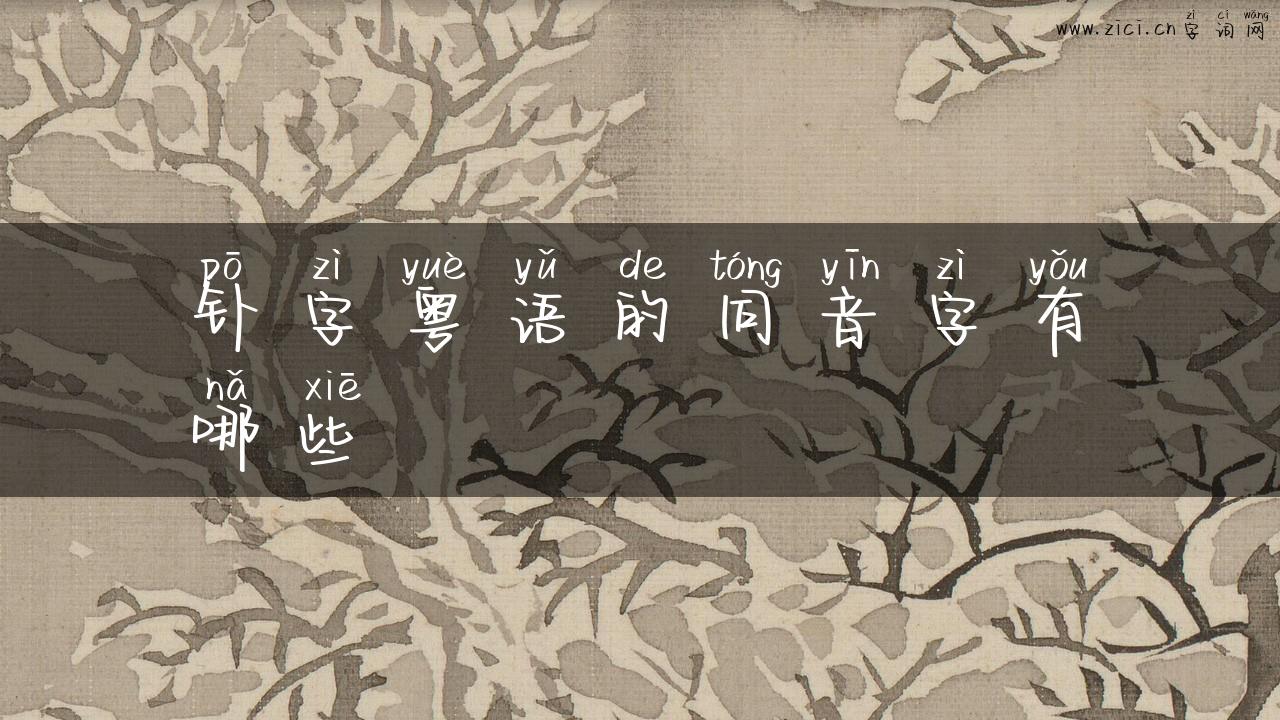 www.zici.cn zì cí wǎng
字 词 网
pō zì yuè yǔ de tóng yīn zì yǒu
钋 字 粤 语 的 同 音 字 有
nǎ xiē
哪 些